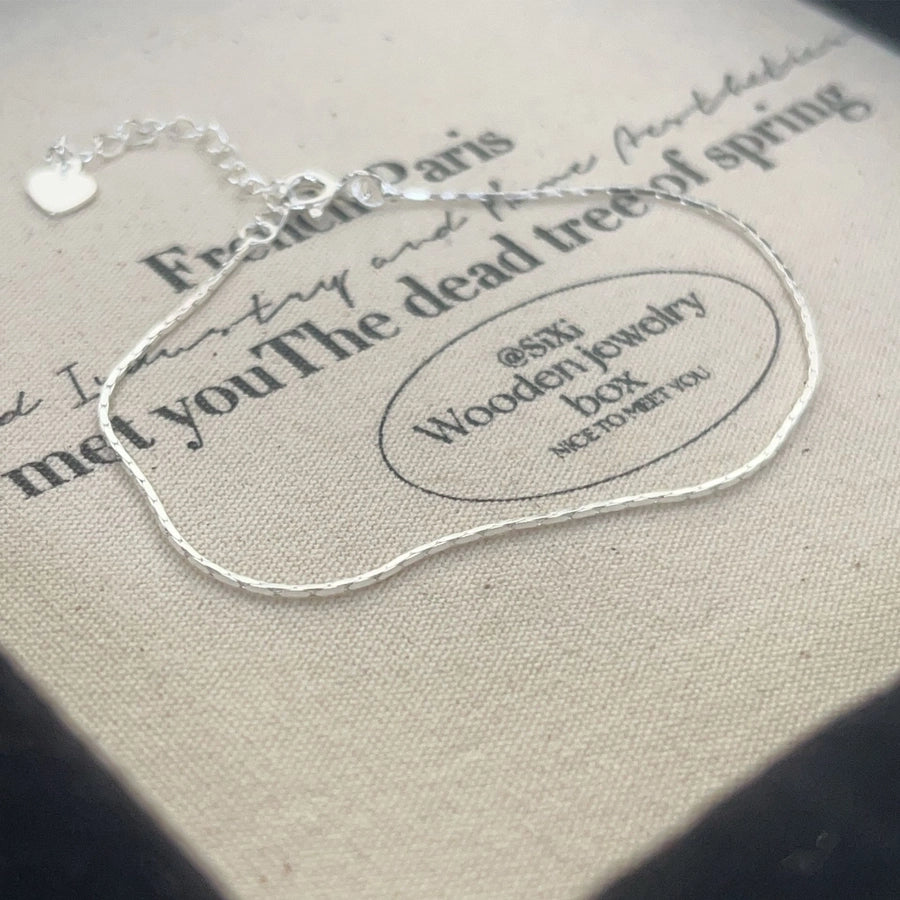 French Paris
Industry and Home Aesthetics
met youThe dead tree of spring
@SiXi
Wooden jewelry
box
NICE TO MEET YOU